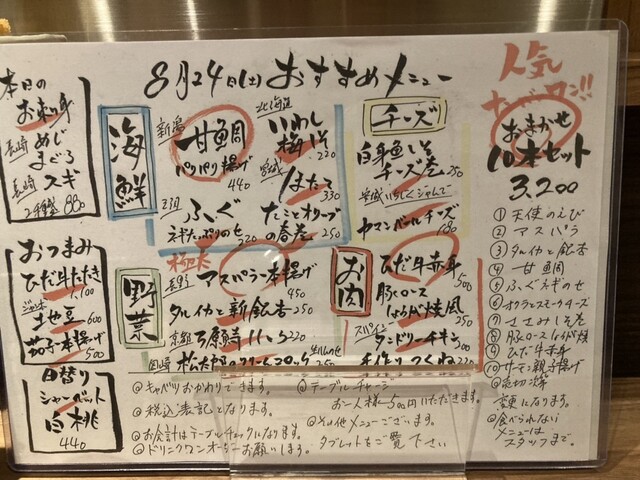 8月24日(土)おすすめメニュー
本日の
お刺身
長崎 めじ
まぐろ
長崎 スギ
2種盛 880
おつまみ
ひだ牛たたき
1,100
600
茄子一本揚げ
500
日替り
シャーベット
白桃
440
海鮮
新潟 甘鯛
パリパリ揚げ
440
ふぐ
ネギたっぷりのせ
320
北海道
いわし
梅しそ
220
宮城
ほたて
330
たことオリーブ
の春巻 250
チーズ
白身魚しそ
チーズ巻 250
宮城 いちじくジャムで
カマンベールチーズ
680
野菜
極太
長野 アスパラ一本揚げ
450
ホタルイカと新銀杏 250
京都 万願寺 220
250
お肉
ひだ牛赤身
500
豚ロース
しょうが焼風
250
スパイシー
タンドリーチキン
300
手作りつくね 220
人気
ナンバーワン!!
おまかせ
10本セット
3,200
① 天使のえび
② アスパラ
③ ホタルイカと銀杏
④ 甘鯛
⑤ ふぐネギのせ
⑥ オクラとスモークチーズ
⑦ ささみしそ巻
⑧ 豚ロースしょうが焼
⑨ ひだ牛赤身
⑩ サーモン親子揚げ
◎売切次第
変更になります。
◎食べられない
メニューは
スタッフまで。
◎キャベツおかわりできます。
◎税込表記となります。
◎お会計はテーブルチェックになります。
◎ドリンクワンオーダーお願いします。
◎テーブルチャージ
お一人様500円いただきます。
◎その他メニューございます。
タブレットをご覧下さい